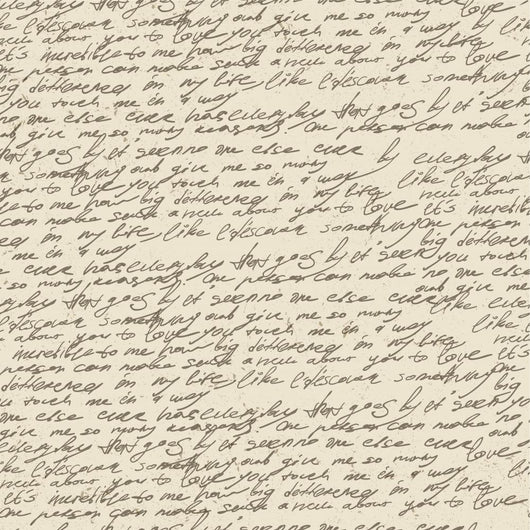 everyday that goes by it' seems
like I discover something and give me so many
new about you to love you touch me in a way by
It's incredible to me how big difference in my life like
one person can make such a new about you to love
difference in my life, like I discover something
you touch me in a way
one else ever has everyday that goes by it' seem
and give me so many reasons. One person can make
that goes by it' seem no one else ever
something and give me so many by everyday that
you to love you touch me in a way like I discover
to me how big difference in my life new
can make such a new about you to love It's incredible
in my life, like I discover something One person
me in a way big difference
ever has everyday that goes by it' seem you touch
so many reasons. One person can make no one else
everyday that goes by it' seem no one else ever and give me
I discover something and give me so many like
new about you to love you touch me in a way new
incredible to me how big difference in my life It's
person can make such a new about you to love
difference in my life, like I discover something One
touch me in a way big
one else ever has everyday that goes by it' seem you
give me so many reasons. One person can make no
everyday that goes by it' seem no one else ever and
like I discover something and give me so many love
new about you to love you touch me in a way
It's incredible to me how big difference in my life
one person can make such a new about you to love